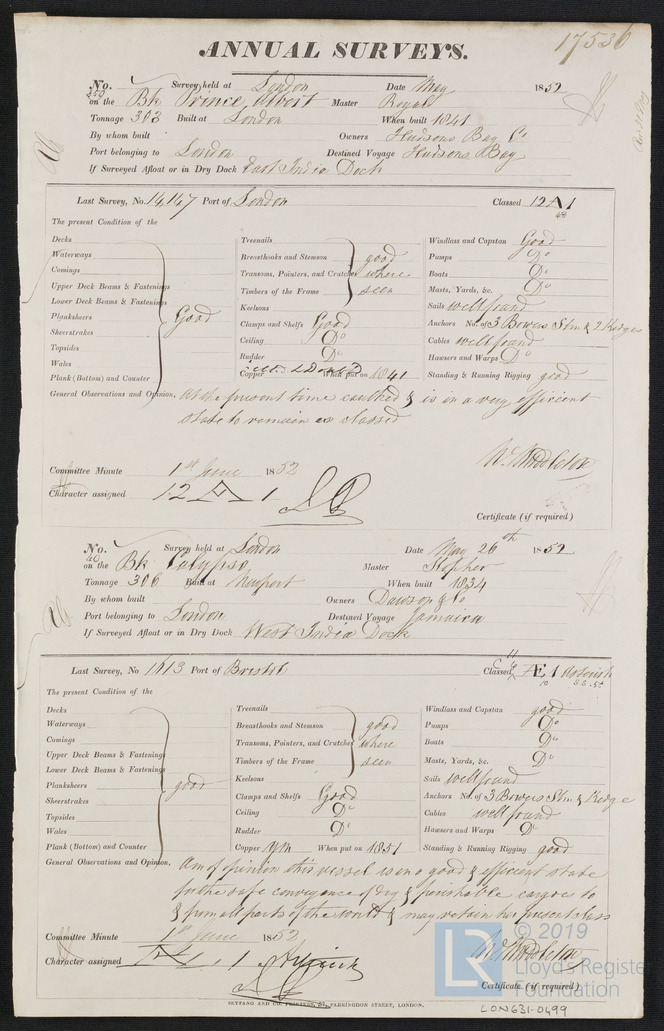 17536
ANNUAL SURVEYS.
No. Survey held at London Date May 1852
on the Bk Prince Albert Master Royal
Tonnage 303 Built at London When built 1841
By whom built Owners Hudsons Bay Co
Port belonging to London Destined Voyage Hudsons Bay
If Surveyed Afloat or in Dry Dock East India Dock
Last Survey, No. 14,147 Port of London Classed 12 A 1
48
The present Condition of the
Decks Treenails Windlass and Capstan Good
Waterways Breasthooks and Stemson good Pumps Do
Comings Transoms, Pointers, and Crutches where Boats Do
Upper Deck Beams & Fastenings Timbers of the Frame seen Masts, Yards, &c. Do
Lower Deck Beams & Fastenings Keelsons Sails well found
Planksheers Good Clamps and Shelfs Good Anchors No. of 3 Bowers Stm & 2 Kedges
Sheerstrakes Ceiling Do Cables well found
Topsides Rudder Do Hawsers and Warps Do
Wales Copper When put on 1841 Standing & Running Rigging good
Plank (Bottom) and Counter
General Observations and Opinion, At the present time caulked & is in a very efficient
state to remain as classed
Wm Middleton
Committee Minute 1st June 1852
Character assigned 12 A 1
Certificate (if required)
No. Survey held at London Date May 26th 1852
on the Bk Calypso Master Hopher
Tonnage 306 Built at Newport When built 1834
By whom built Owners Dawson & Co
Port belonging to London Destined Voyage Jamaica
If Surveyed Afloat or in Dry Dock West India Dock
Last Survey, No 1613 Port of Bristol Classed Æ 1 Asterisk
10
The present Condition of the
Decks Treenails Windlass and Capstan good
Waterways Breasthooks and Stemson good Pumps Do
Comings Transoms, Pointers, and Crutches where Boats Do
Upper Deck Beams & Fastenings Timbers of the Frame seen Masts, Yards, &c. Do
Lower Deck Beams & Fastenings Keelsons Sails well found
Planksheers good Clamps and Shelfs Good Anchors No. of 3 Bowers Stm & Kedge
Sheerstrakes Ceiling Do Cables well found
Topsides Rudder Do Hawsers and Warps Do
Wales Copper YM When put on 1851 Standing & Running Rigging good
Plank (Bottom) and Counter
General Observations and Opinion, Am of opinion this vessel is in a good & efficient state
for the safe conveyance of dry & perishable cargoes to
& from all parts of the world & may retain her present class
Committee Minute 1st June 1852
Wm Middleton
Character assigned Æ 1 Asterisk
Certificate (if required)
SEYFANG AND CO. PRINTERS, FARRINGDON STREET, LONDON.
LR © 2019
Lloyd's Register
Foundation
LON631-0499